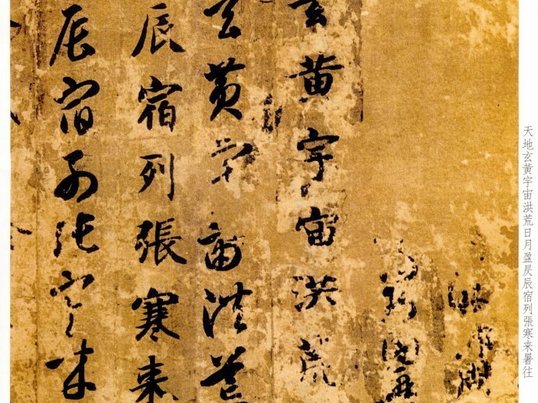 天地玄黃宇宙洪荒日月盈昃辰宿列張寒来暑往
玄黄宇宙洪荒
玄黄宇宙洪荒
辰宿列張寒来
辰宿列張寒来